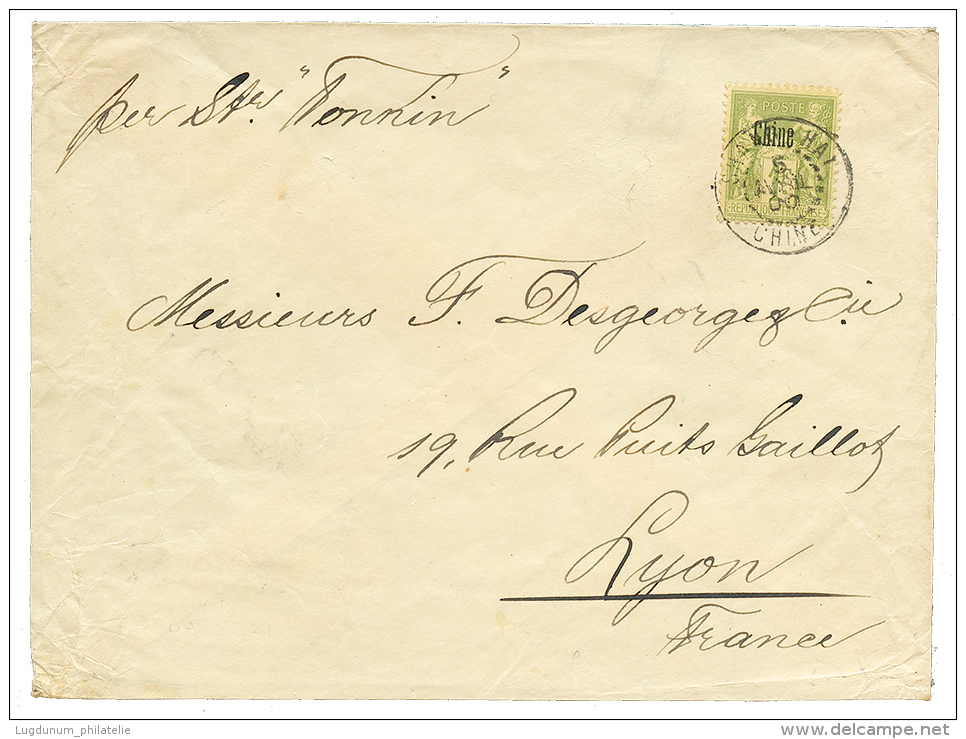 per Str "Tonkin"
POSTE
Chine
SHANG-HAI
5
AVRIL
00
REPUBLIQUE FRANCAISE
CHINE
Messieurs F. Desgeorge & Cie
19, Rue Puits Gaillot
Lyon
France
Lugdunum_philatelie
delcampe.net